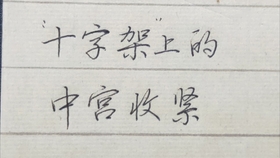 "十字架"上的
中宫收紧